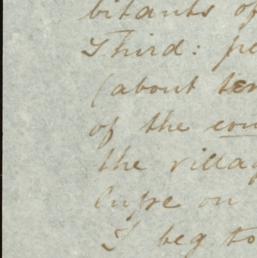 bitants of
Third: pe
(about ten
of the cou
the villag
lupe on
I beg to